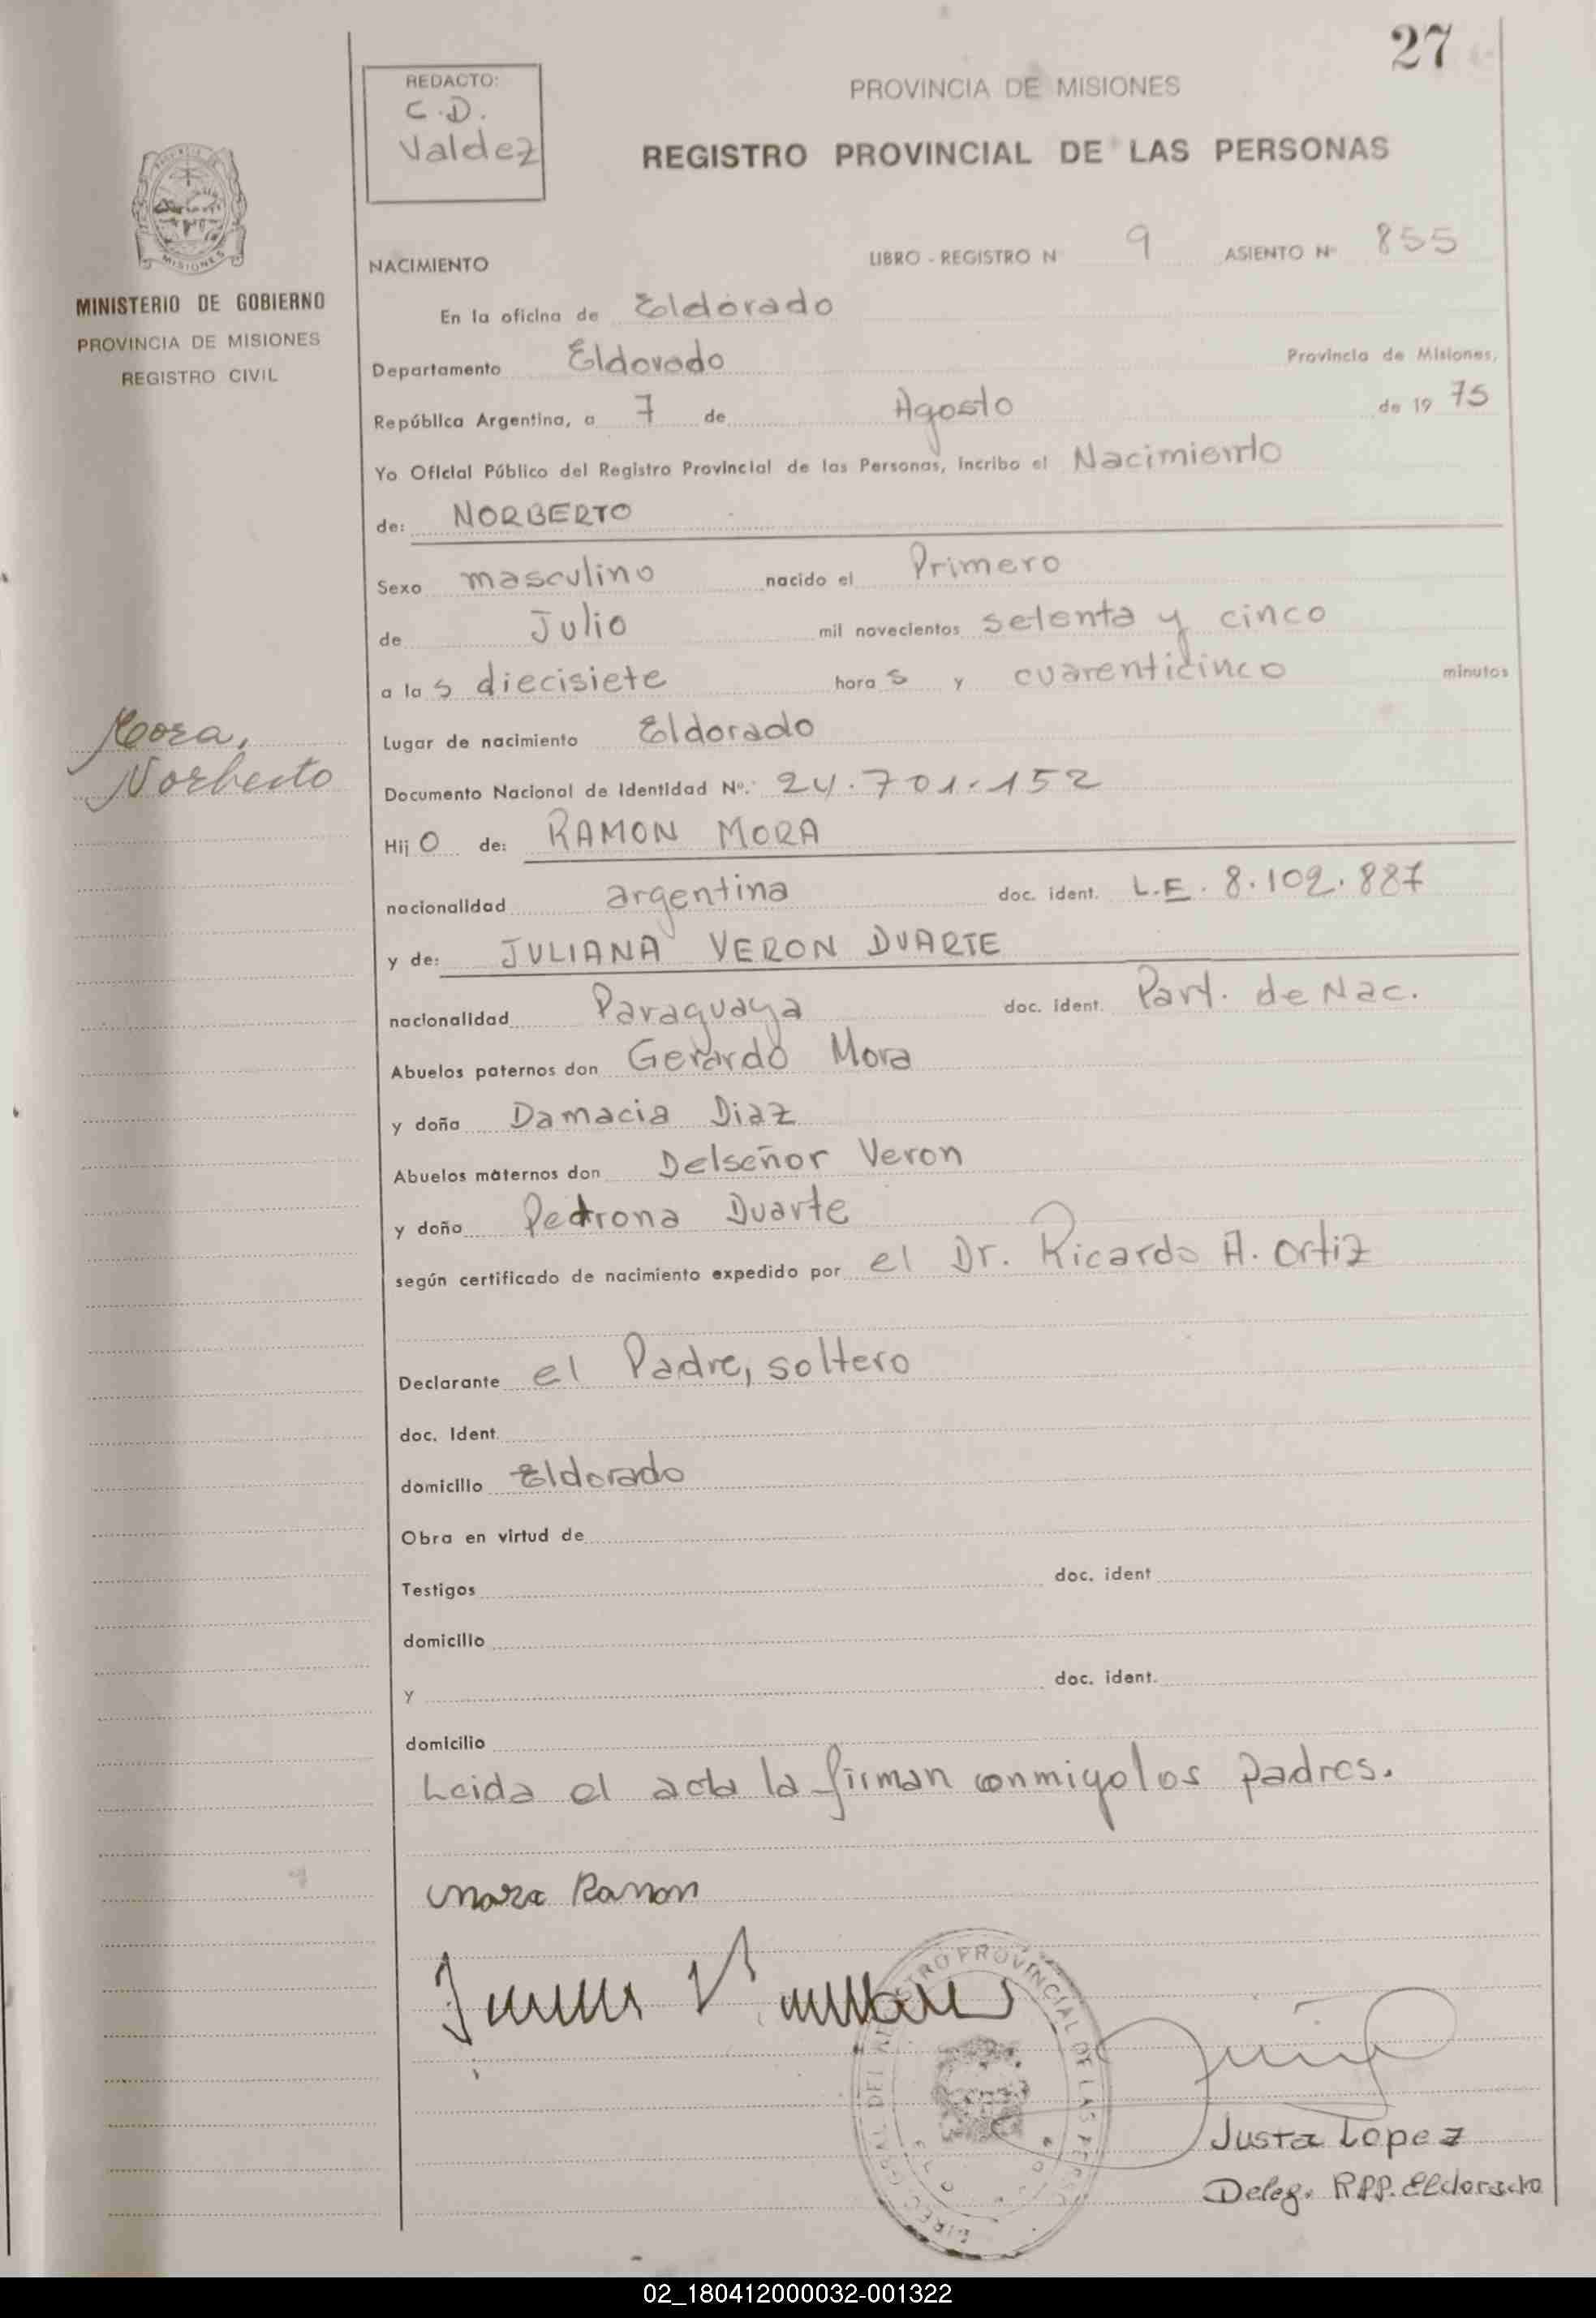 27
REDACTO:
C.D.
Valdez
PROVINCIA DE MISIONES
REGISTRO PROVINCIAL DE LAS PERSONAS
MISIONES
MINISTERIO DE GOBIERNO
PROVINCIA DE MISIONES
REGISTRO CIVIL
NACIMIENTO LIBRO - REGISTRO N 9 ASIENTO Nº 855
En la oficina de Eldorado
Departamento Eldorado Provincia de Misiones,
República Argentina, a 7 de Agosto de 19 75
Yo Oficial Público del Registro Provincial de las Personas, incribo el Nacimiento
de: NORBERTO
Sexo masculino nacido el Primero
de Julio mil novecientos setenta y cinco
a las diecisiete horas y cuarenticinco minutos
Mora,
Norberto
Lugar de nacimiento Eldorado
Documento Nacional de Identidad Nº: 24.701.152
Hijo de: RAMON MORA
nacionalidad argentina doc. ident. L.E. 8.102.887
y de: JULIANA VERON DUARTE
nacionalidad Paraguaya doc. ident. Part. de Nac.
Abuelos paternos don Gerardo Mora
y doña Damacia Diaz
Abuelos maternos don Delseñor Veron
y doña Pedrona Duarte
según certificado de nacimiento expedido por el Dr. Ricardo A. Ortiz
Declarante el Padre, soltero
doc. Ident.
domicilio Eldorado
Obra en virtud de
Testigos doc. ident
domicilio
y doc. ident.
domicilio
Leida el acta la firman conmigo los padres.
Mora Ramon
REGISTRO PROVINCIAL DE LAS
Justa Lopez
Deleg. RPP. Eldorado
02_180412000032-001322